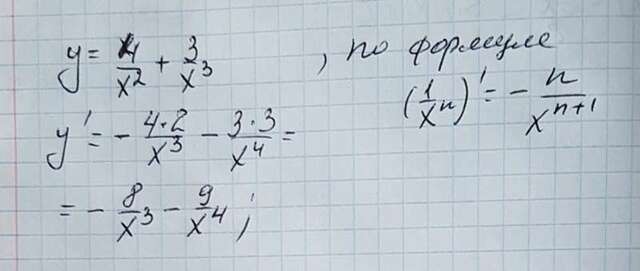 y = 4/x² + 3/x³ , по формуле
(1/xⁿ)' = - n/xⁿ⁺¹
y' = - 4·2/x³ - 3·3/x⁴ =
= - 8/x³ - 9/x⁴ ;